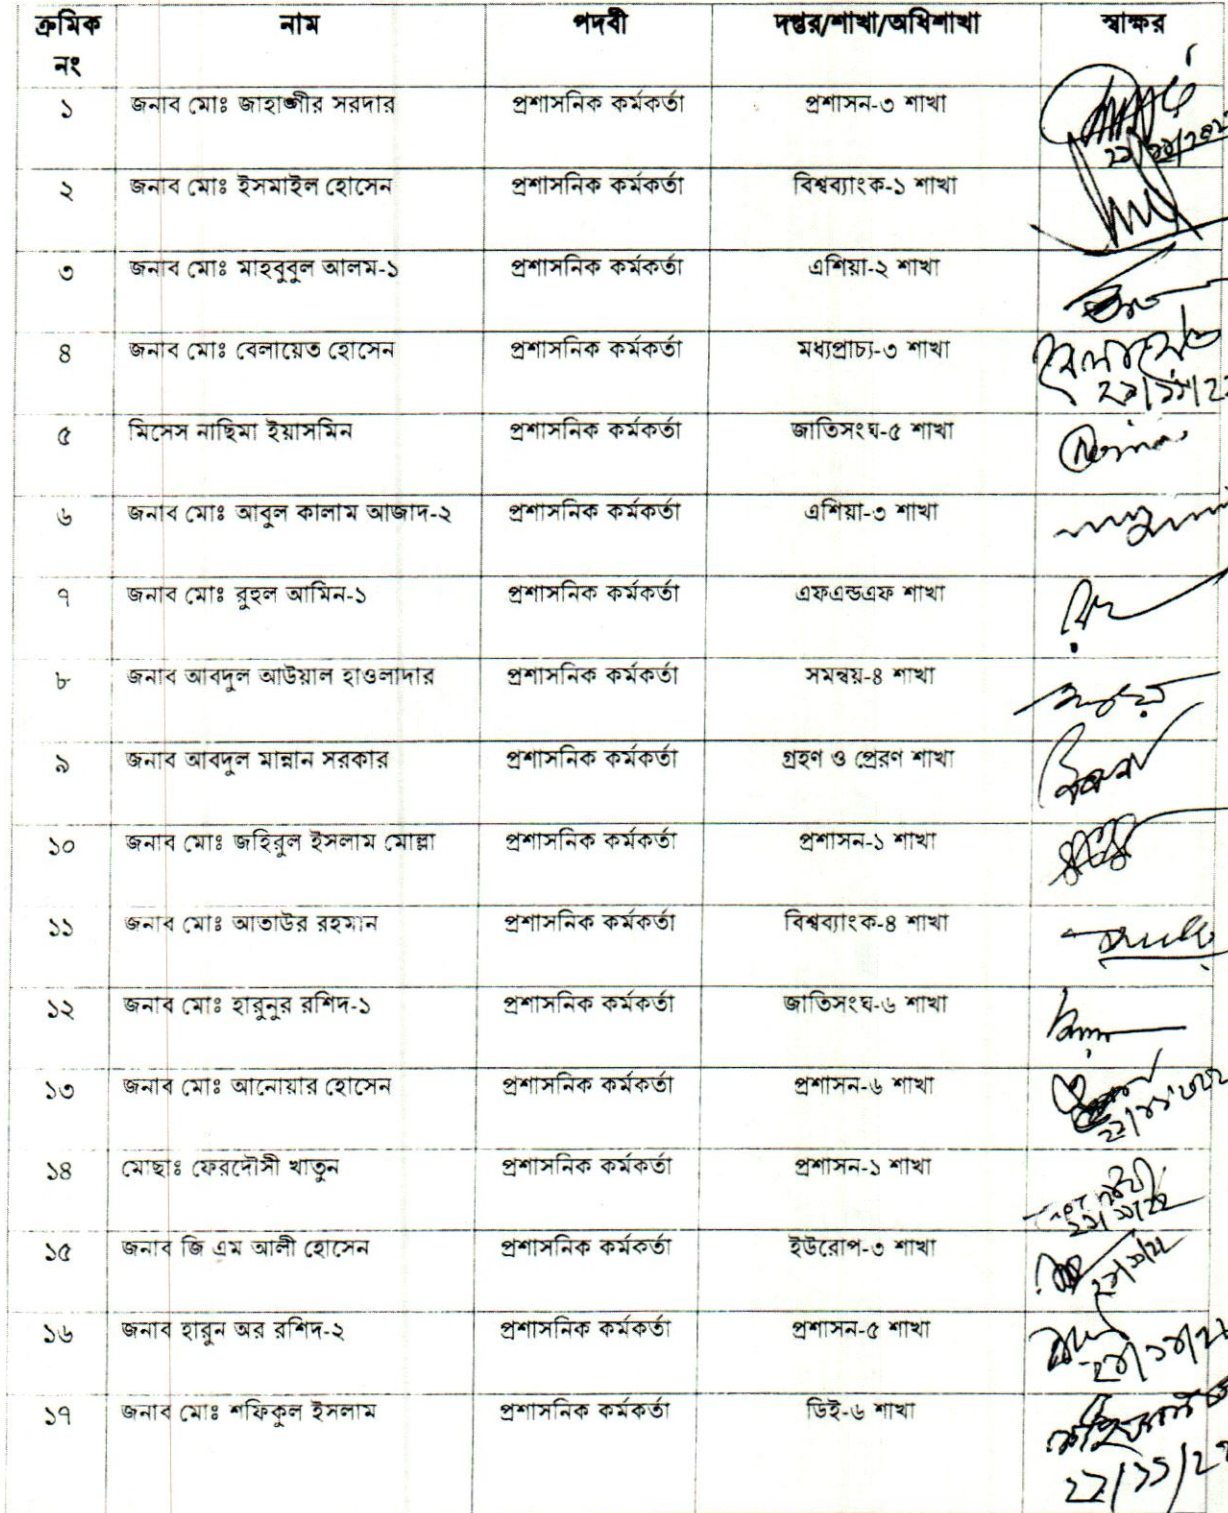 ক্রমিক নং	নাম	পদবী	দপ্তর/শাখা/অধিশাখা	স্বাক্ষর
১	জনাব মোঃ জাহাঙ্গীর সরদার	প্রশাসনিক কর্মকর্তা	প্রশাসন-৩ শাখা
২	জনাব মোঃ ইসমাইল হোসেন	প্রশাসনিক কর্মকর্তা	বিশ্বব্যাংক-১ শাখা
৩	জনাব মোঃ মাহবুবুল আলম-১	প্রশাসনিক কর্মকর্তা	এশিয়া-২ শাখা
৪	জনাব মোঃ বেলায়েত হোসেন	প্রশাসনিক কর্মকর্তা	মধ্যপ্রাচ্য-৩ শাখা	বেলায়েত
৫	মিসেস নাছিমা ইয়াসমিন	প্রশাসনিক কর্মকর্তা	জাতিসংঘ-৫ শাখা
৬	জনাব মোঃ আবুল কালাম আজাদ-২	প্রশাসনিক কর্মকর্তা	এশিয়া-৩ শাখা
৭	জনাব মোঃ রুহুল আমিন-১	প্রশাসনিক কর্মকর্তা	এফএন্ডএফ শাখা
৮	জনাব আবদুল আউয়াল হাওলাদার	প্রশাসনিক কর্মকর্তা	সমন্বয়-৪ শাখা
৯	জনাব আবদুল মান্নান সরকার	প্রশাসনিক কর্মকর্তা	গ্রহণ ও প্রেরণ শাখা
১০	জনাব মোঃ জহিরুল ইসলাম মোল্লা	প্রশাসনিক কর্মকর্তা	প্রশাসন-১ শাখা
১১	জনাব মোঃ আতাউর রহমান	প্রশাসনিক কর্মকর্তা	বিশ্বব্যাংক-৪ শাখা
১২	জনাব মোঃ হারুনুর রশিদ-১	প্রশাসনিক কর্মকর্তা	জাতিসংঘ-৬ শাখা
১৩	জনাব মোঃ আনোয়ার হোসেন	প্রশাসনিক কর্মকর্তা	প্রশাসন-৬ শাখা
১৪	মোছাঃ ফেরদৌসী খাতুন	প্রশাসনিক কর্মকর্তা	প্রশাসন-১ শাখা
১৫	জনাব জি এম আলী হোসেন	প্রশাসনিক কর্মকর্তা	ইউরোপ-৩ শাখা
১৬	জনাব হারুন অর রশিদ-২	প্রশাসনিক কর্মকর্তা	প্রশাসন-৫ শাখা
১৭	জনাব মোঃ শফিকুল ইসলাম	প্রশাসনিক কর্মকর্তা	ডিই-৬ শাখা